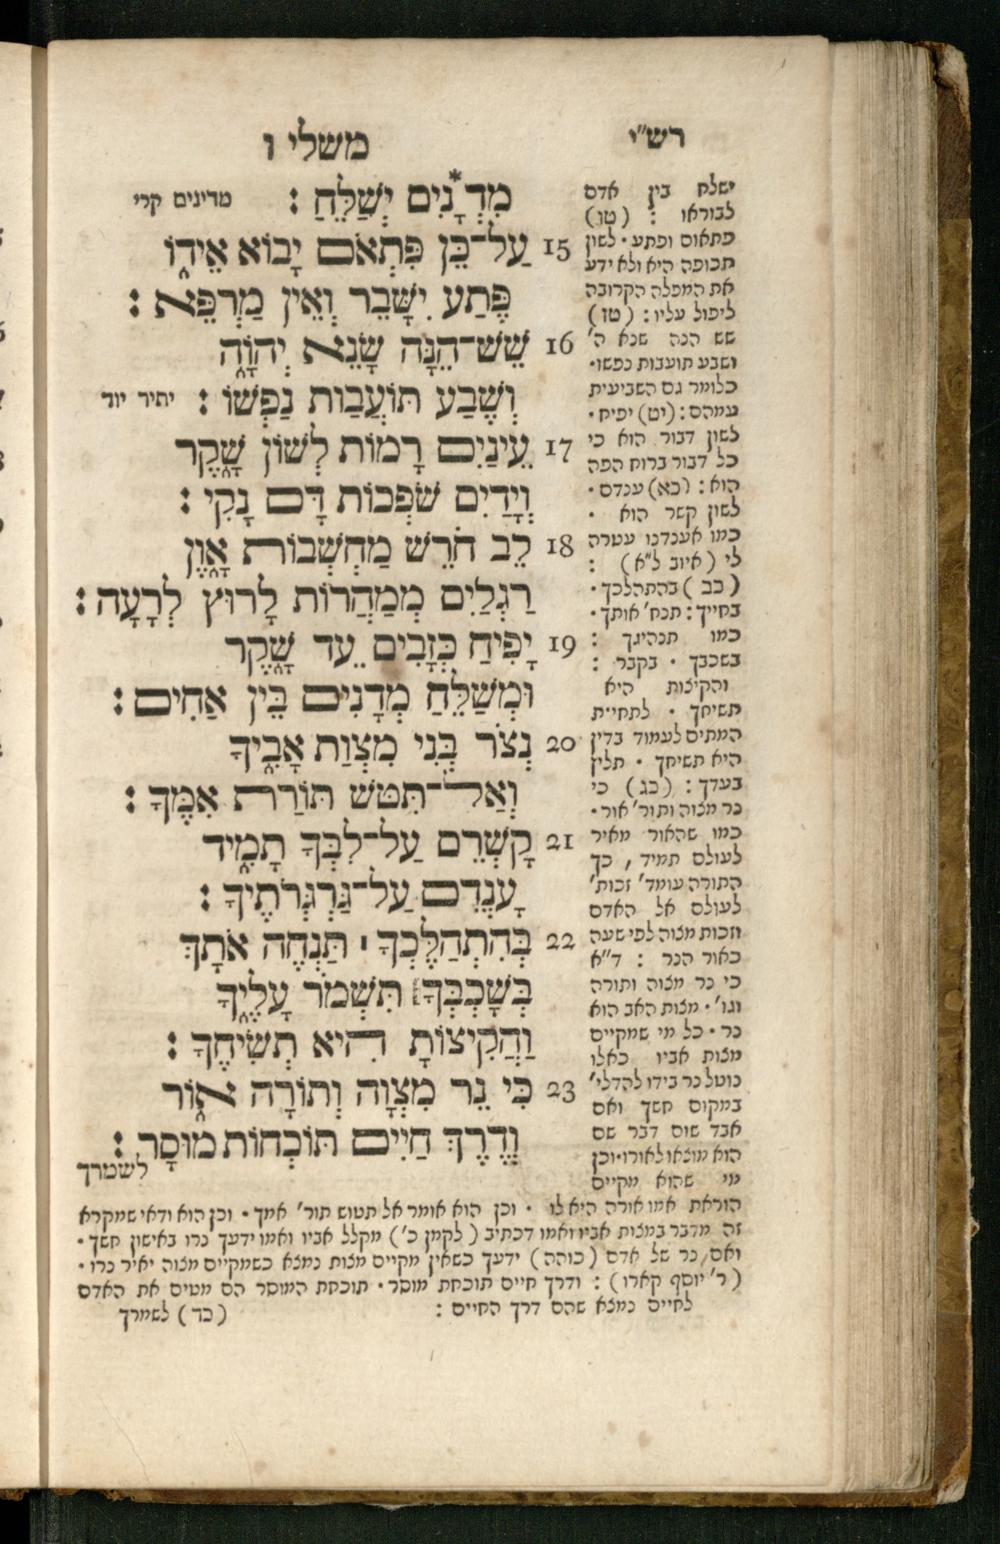 משלי ו
מִדְיָנִים* יְשַׁלֵּחַ׃
מדינים קרי
15 עַל־כֵּן פִּתְאֹם יָבוֹא אֵידוֹ
פֶּתַע יִשָּׁבֵר וְאֵין מַרְפֵּא׃
16 שֵׁשׁ־הֵנָּה שָׂנֵא יְהוָה
וְשֶׁבַע תּוֹעֲבוֹת נַפְשׁוֹ׃
יתיר יוד
17 עֵינַיִם רָמוֹת לְשׁוֹן שָׁקֶר
וְיָדַיִם שֹׁפְכוֹת דָּם נָקִי׃
18 לֵב חֹרֵשׁ מַחְשְׁבוֹת אָוֶן
רַגְלַיִם מְמַהֲרוֹת לָרוּץ לְרָעָה׃
19 יָפִיחַ כְּזָבִים עֵד שָׁקֶר
וּמְשַׁלֵּחַ מְדָנִים בֵּין אַחִים׃
20 נְצֹר בְּנִי מִצְוַת אָבִיךָ
וְאַל־תִּטֹּשׁ תּוֹרַת אִמֶּךָ׃
21 קָשְׁרֵם עַל־לִבְּךָ תָמִיד
עָנְדֵם עַל־גַּרְגְּרֹתֶיךָ׃
22 בְּהִתְהַלֶּכְךָ ׀ תַּנְחֶה אֹתָךְ
בְּשָׁכְבְּךָ תִּשְׁמֹר עָלֶיךָ
וַהֲקִיצוֹתָ הִיא תְשִׂיחֶךָ׃
23 כִּי נֵר מִצְוָה וְתוֹרָה אוֹר
וְדֶרֶךְ חַיִּים תּוֹכְחוֹת מוּסָר׃
לשמרך
רש״י
ישלח בין אדם
לבוראו : (טו)
פתאום ופתע · לשון
תכופה היא ולא ידע
את המפלה הקרובה
ליפול עליו : (טז)
שש הנה שנא ה'
ושבע תועבות נפשו·
כלומר גם השביעית
עמהם : (יט) יפיח ·
לשון דבור הוא כי
כל דבור ברוח הפה
הוא : (כא) ענדם ·
לשון קשר הוא ·
כמו אענדנו עטרה
לי (איוב ל״א) :
(כב) בהתהלכך ·
בחייך : תנח' אותך·
כמו תנהיגך :
בשכבך · בקבר :
והקיצות היא
תשיחך · לתחיית
המתים לעמוד בדין
היא תשיחך · תלין
בעדך : (כג) כי
נר מצוה ותור' אור·
כמו שהאור מאיר
לעולם תמיד, כך
התורה עומד' זכות'
לעולם אל האדם
וזכות מצוה לפי שעה
כאור הנר : ד״א
כי נר מצוה ותורה
וגו'· מצות האב הוא
נר · כל מי שמקיים
מצות אביו כאלו
נוטל נר בידו להדלי'
במקום חשך ואם
אבד שום דבר שם
הוא מוצאו לאורו·וכן
מי שהוא מקיים
הוראת אמו אורה היא לו · וכן הוא אומר אל תטוש תור' אמך · וכן הוא ודאי שמקרא
זה מדבר במצות אביו ואמו דכתיב (לקמן כ') מקלל אביו ואמו ידעך נרו באישון חשך ·
ואם, נר של אדם (כוהה) ידעך כשאין מקיים מצות נמצא כשמקיים מצוה יאיר נרו ·
(ר' יוסף קארו) : ודרך חיים תוכחת מוסר · תוכחת המוסר הם מטים את האדם
לחיים נמצא שהם דרך החיים : (כד) לשמרך